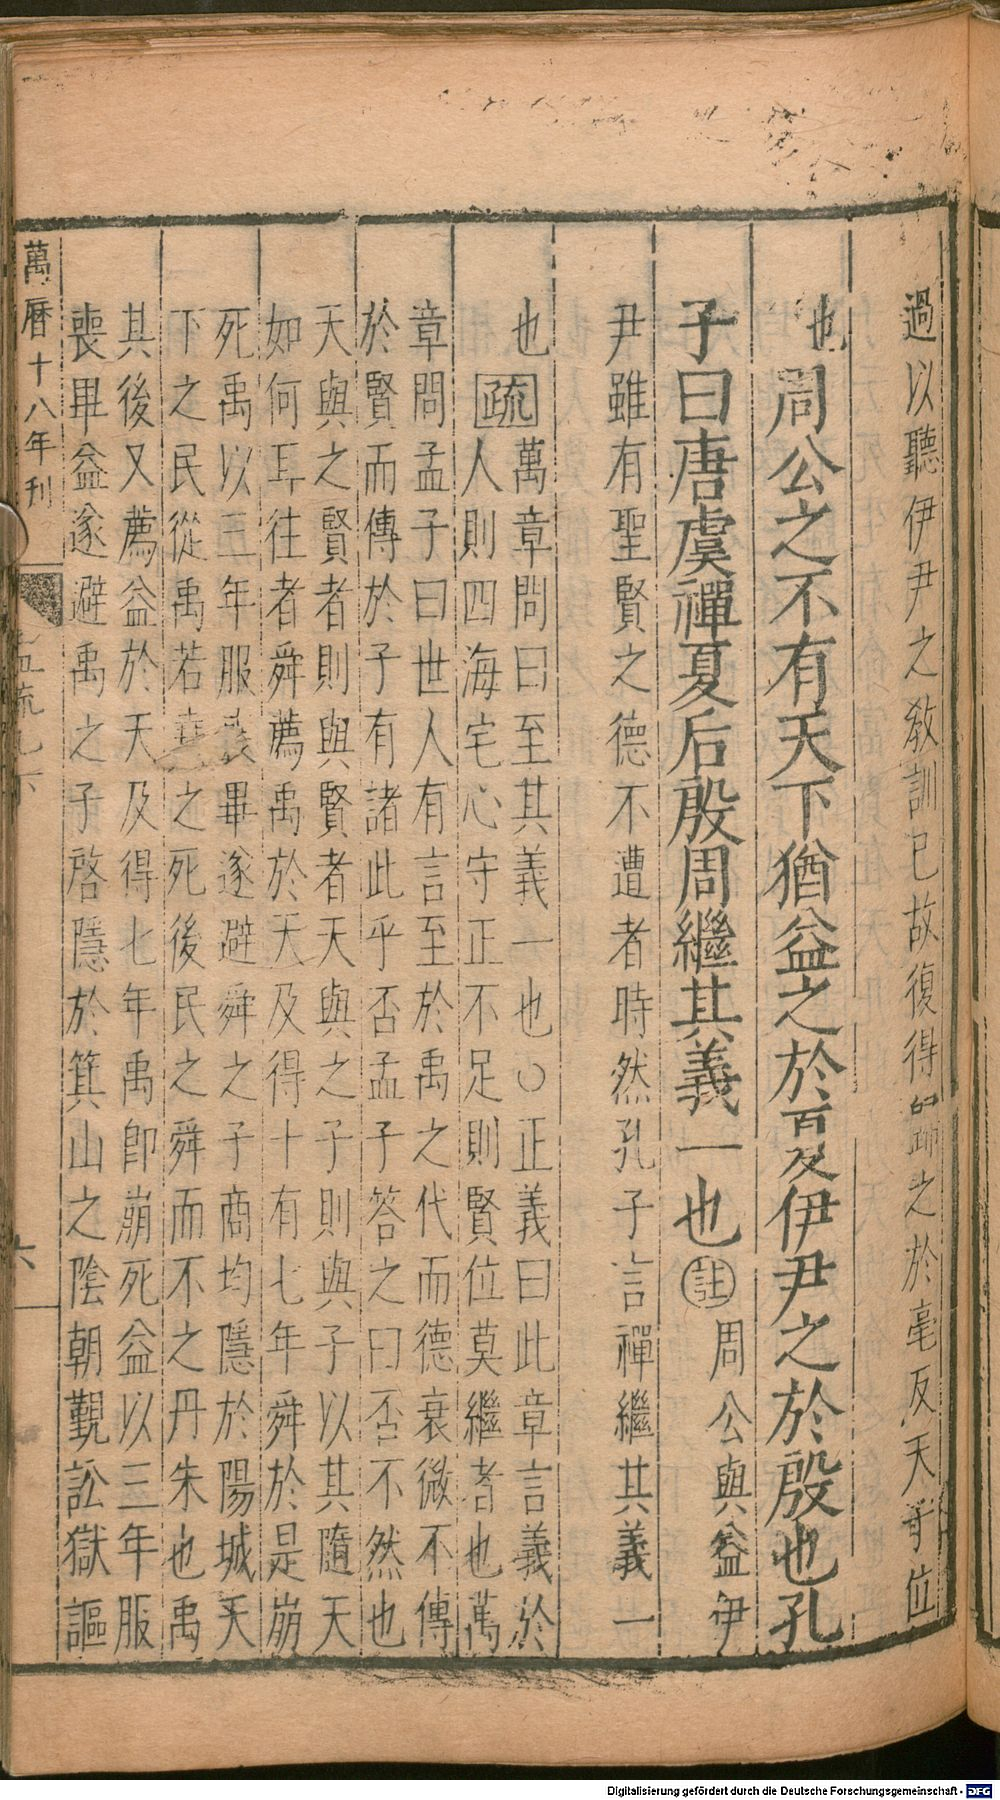 過以聽伊尹之敎訓已故復得歸之於亳反天子位
也周公之不有天下猶益之於夏伊尹之於殷也孔
子曰唐虞禪夏后殷周繼其義一也註周公與益伊
尹雖有聖賢之德不遭者時然孔子言禪繼其義一
也疏萬章問曰至其義一也○正義曰此章言義於
人則四海宅心守正不足則賢位莫繼者也萬
章問孟子曰世人有言至於禹之代而德衰微不傳
於賢而傳於子有諸此乎否孟子答之曰否不然也
天與之賢者則與賢者天與之子則與子以其隨天
如何耳往者舜薦禹於天及得十有七年舜於是崩
死禹以三年服喪畢遂避舜之子商均隱於陽城天
下之民從禹若堯之死後民之舜而不之丹朱也禹
其後又薦益於天及得七年禹卽崩死益以三年服
喪畢益遂避禹之子啓隱於箕山之陰朝覲訟獄謳
萬曆十八年刊
六
Digitalisierung gefördert durch die Deutsche Forschungsgemeinschaft - DFG